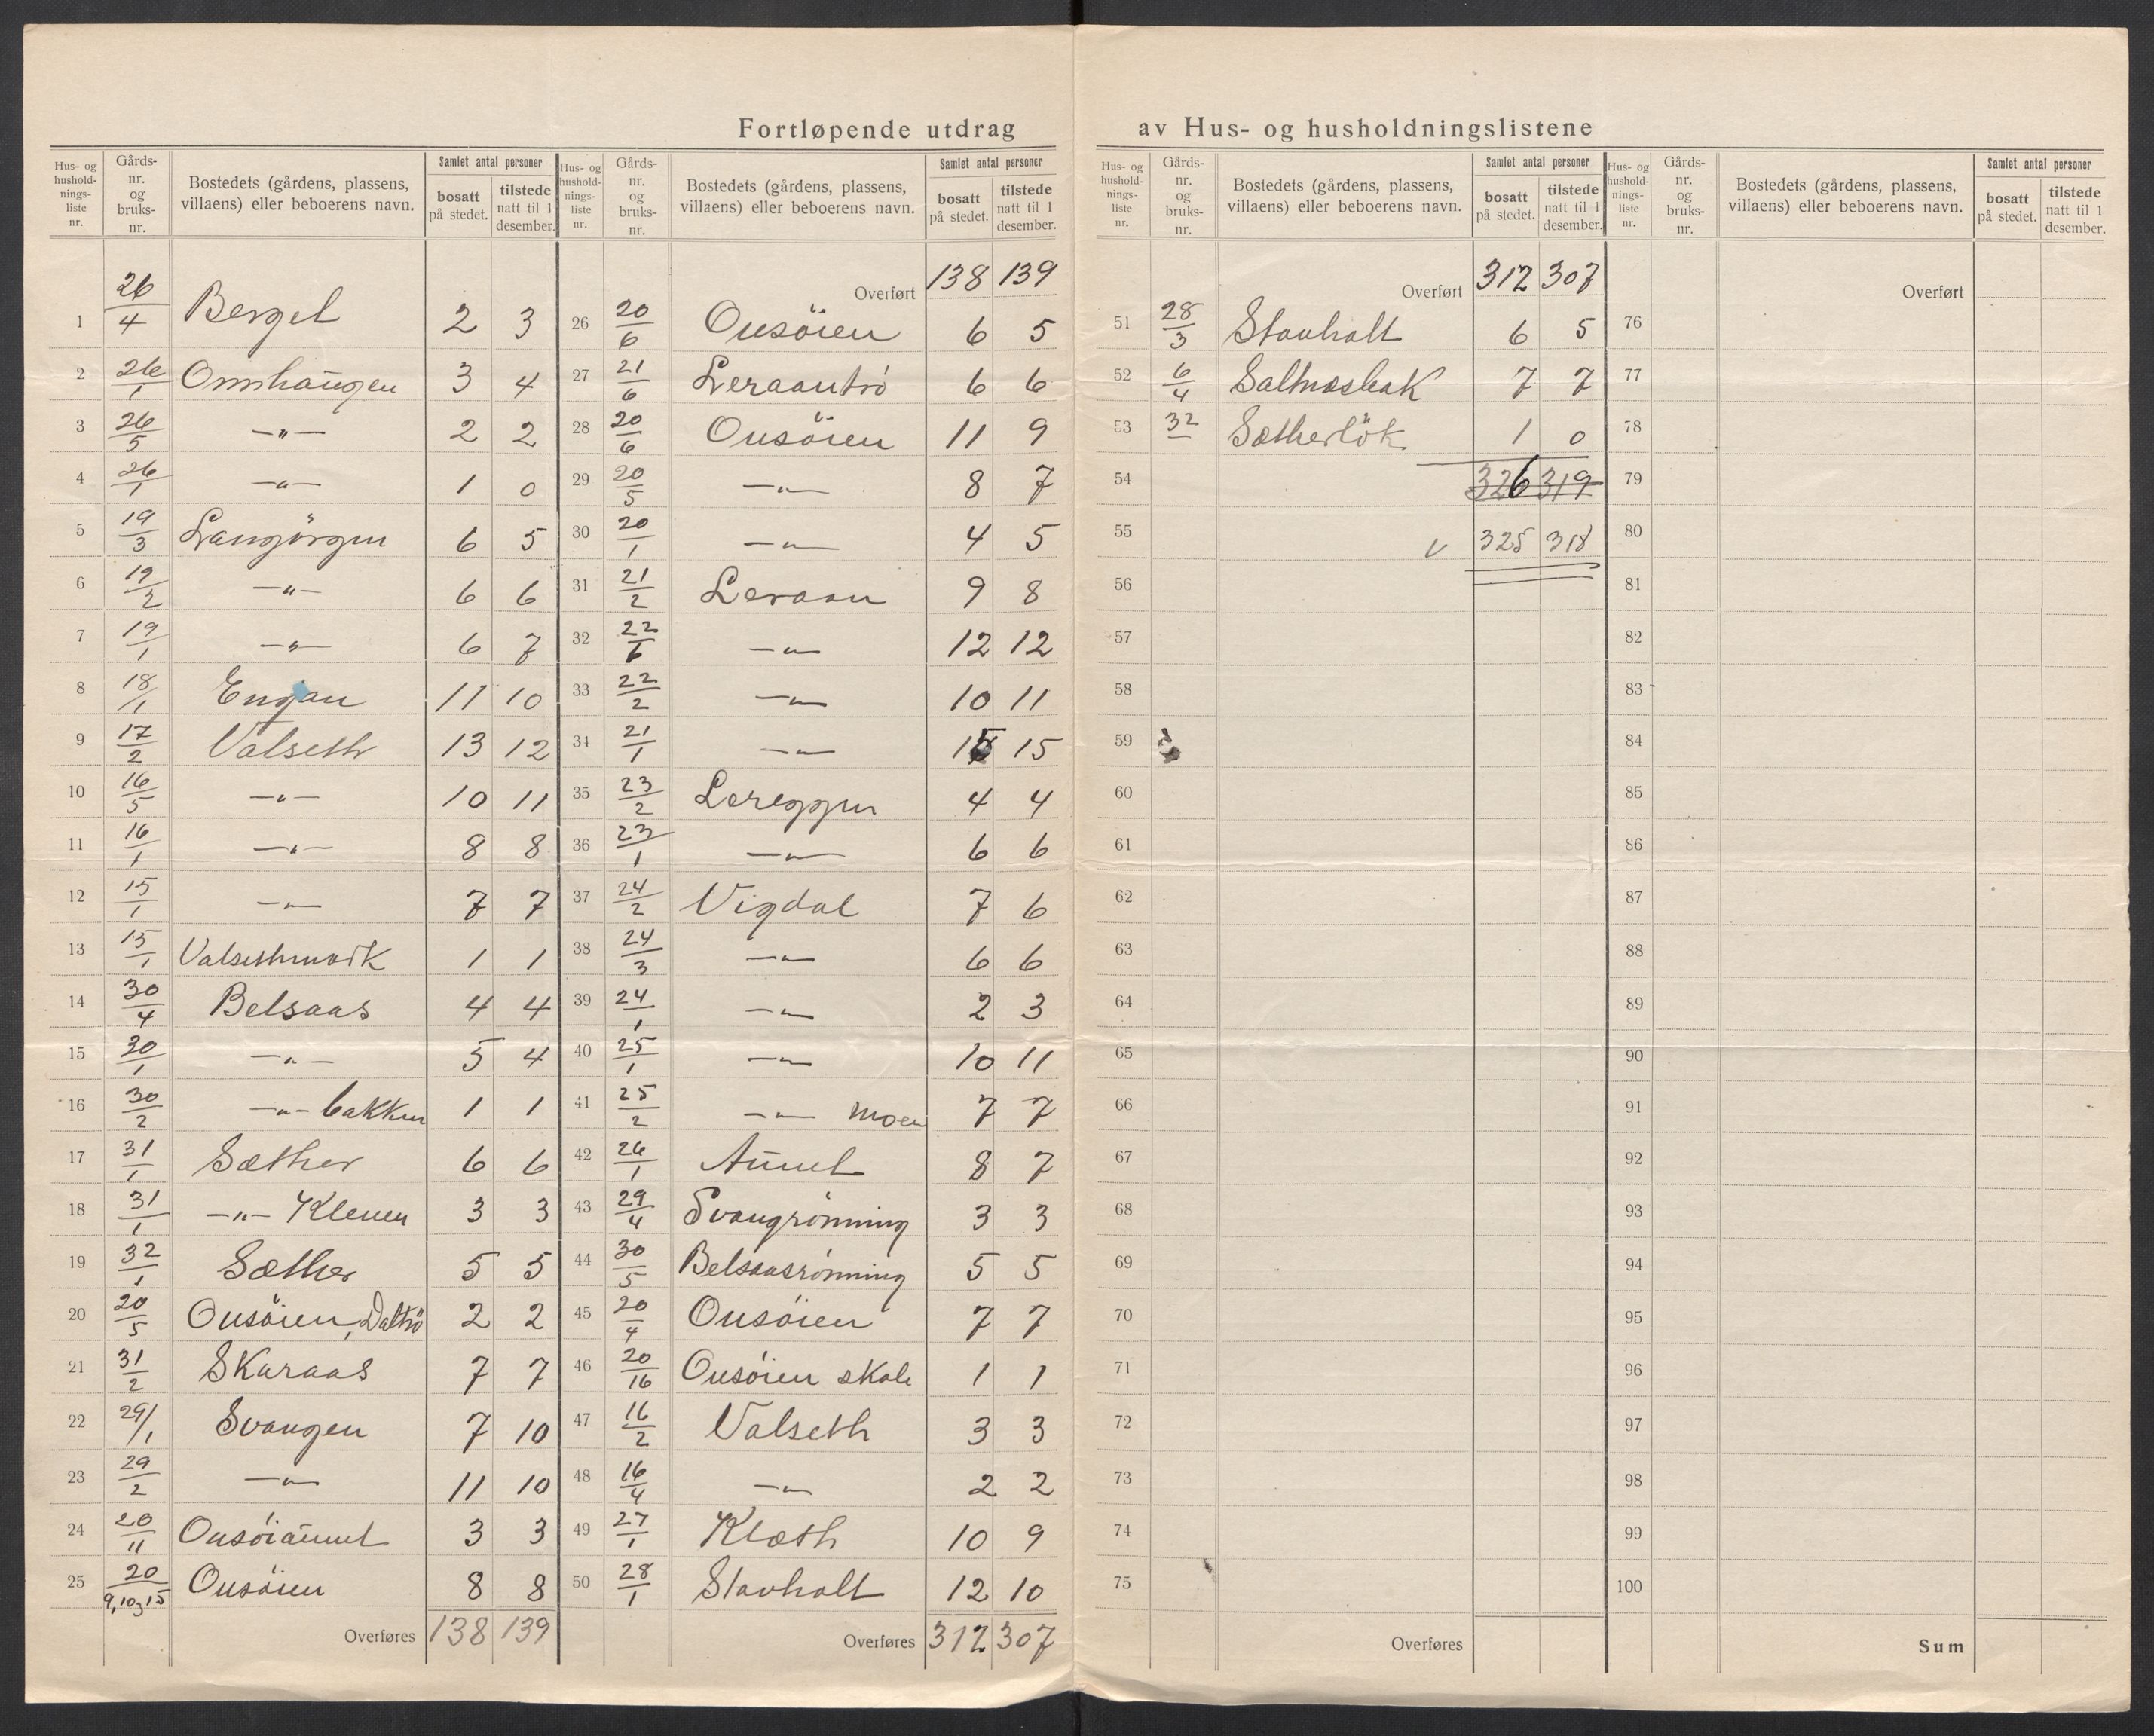 Fortløpende utdrag av Hus- og husholdningslistene
Hus- og hushold-nings-liste nr. Gårds-nr. og bruks-nr. Bostedets (gårdens, plassens, villaens) eller beboerens navn. Samlet antal personer bosatt på stedet. tilstede natt til 1 desember.
1 26/4 Bergel 2 3
2 26/1 Omshaugen 3 4
3 26/5 —"— 2 2
4 26/1 —"— 1 0
5 19/3 Langörgen 6 5
6 19/2 —"— 6 6
7 19/1 —"— 6 7
8 18/1 Engan 11 10
9 17/2 Valseth 13 12
10 16/5 —"— 10 11
11 16/1 —"— 8 8
12 15/1 —"— 7 7
13 15/1 Valsethmark 1 1
14 30/4 Belsaas 4 4
15 30/1 —"— 5 4
16 30/2 —"— bakken 1 1
17 31/1 Sæther 6 6
18 31/1 —"— Kleven 3 3
19 32/1 Sæther 5 5
20 20/5 Ousöien, Daltrö 2 2
21 31/2 Skaraas 7 7
22 29/1 Svangen 7 10
23 29/2 —"— 11 10
24 20/11 Ousöiaunet 3 3
25 20/9,10,15 Ousöien 8 8
Overføres 138 139
Hus- og hushold-nings-liste nr. Gårds-nr. og bruks-nr. Bostedets (gårdens, plassens, villaens) eller beboerens navn. Samlet antal personer bosatt på stedet. tilstede natt til 1 desember.
Overført 138 139
26 20/6 Ousöien 6 5
27 21/6 Leraantrö 6 6
28 20/6 Ousöien 11 9
29 20/5 —"— 8 7
30 20/1 —"— 4 5
31 21/2 Leraan 9 8
32 22/6 —"— 12 12
33 22/2 —"— 10 11
34 21/1 —"— 15 15
35 23/2 Lereggen 4 4
36 23/1 —"— 6 6
37 24/2 Vigdal 7 6
38 24/3 —"— 6 6
39 24/1 —"— 2 3
40 25/1 —"— 10 11
41 25/2 —"— moen 7 7
42 26/1 Aunet 8 7
43 29/4 Svangrönning 3 3
44 30/5 Belsaasrönning 5 5
45 20/4 Ousöien 7 7
46 20/16 Ousöien skole 1 1
47 16/2 Valseth 3 3
48 16/4 —"— 2 2
49 27/1 Klæth 10 9
50 28/1 Stavholt 12 10
Overføres 312 307
Hus- og hushold-nings-liste nr. Gårds-nr. og bruks-nr. Bostedets (gårdens, plassens, villaens) eller beboerens navn. Samlet antal personer bosatt på stedet. tilstede natt til 1 desember.
Overført 312 307
51 28/3 Stavholt 6 5
52 6/4 Saltnæsbak 7 7
53 32/— Sætherlök 1 0
54 326 319
55 v 325 318
56
57
58
59
60
61
62
63
64
65
66
67
68
69
70
71
72
73
74
75
Overføres
Hus- og hushold-nings-liste nr. Gårds-nr. og bruks-nr. Bostedets (gårdens, plassens, villaens) eller beboerens navn. Samlet antal personer bosatt på stedet. tilstede natt til 1 desember.
Overført
76
77
78
79
80
81
82
83
84
85
86
87
88
89
90
91
92
93
94
95
96
97
98
99
100
Sum